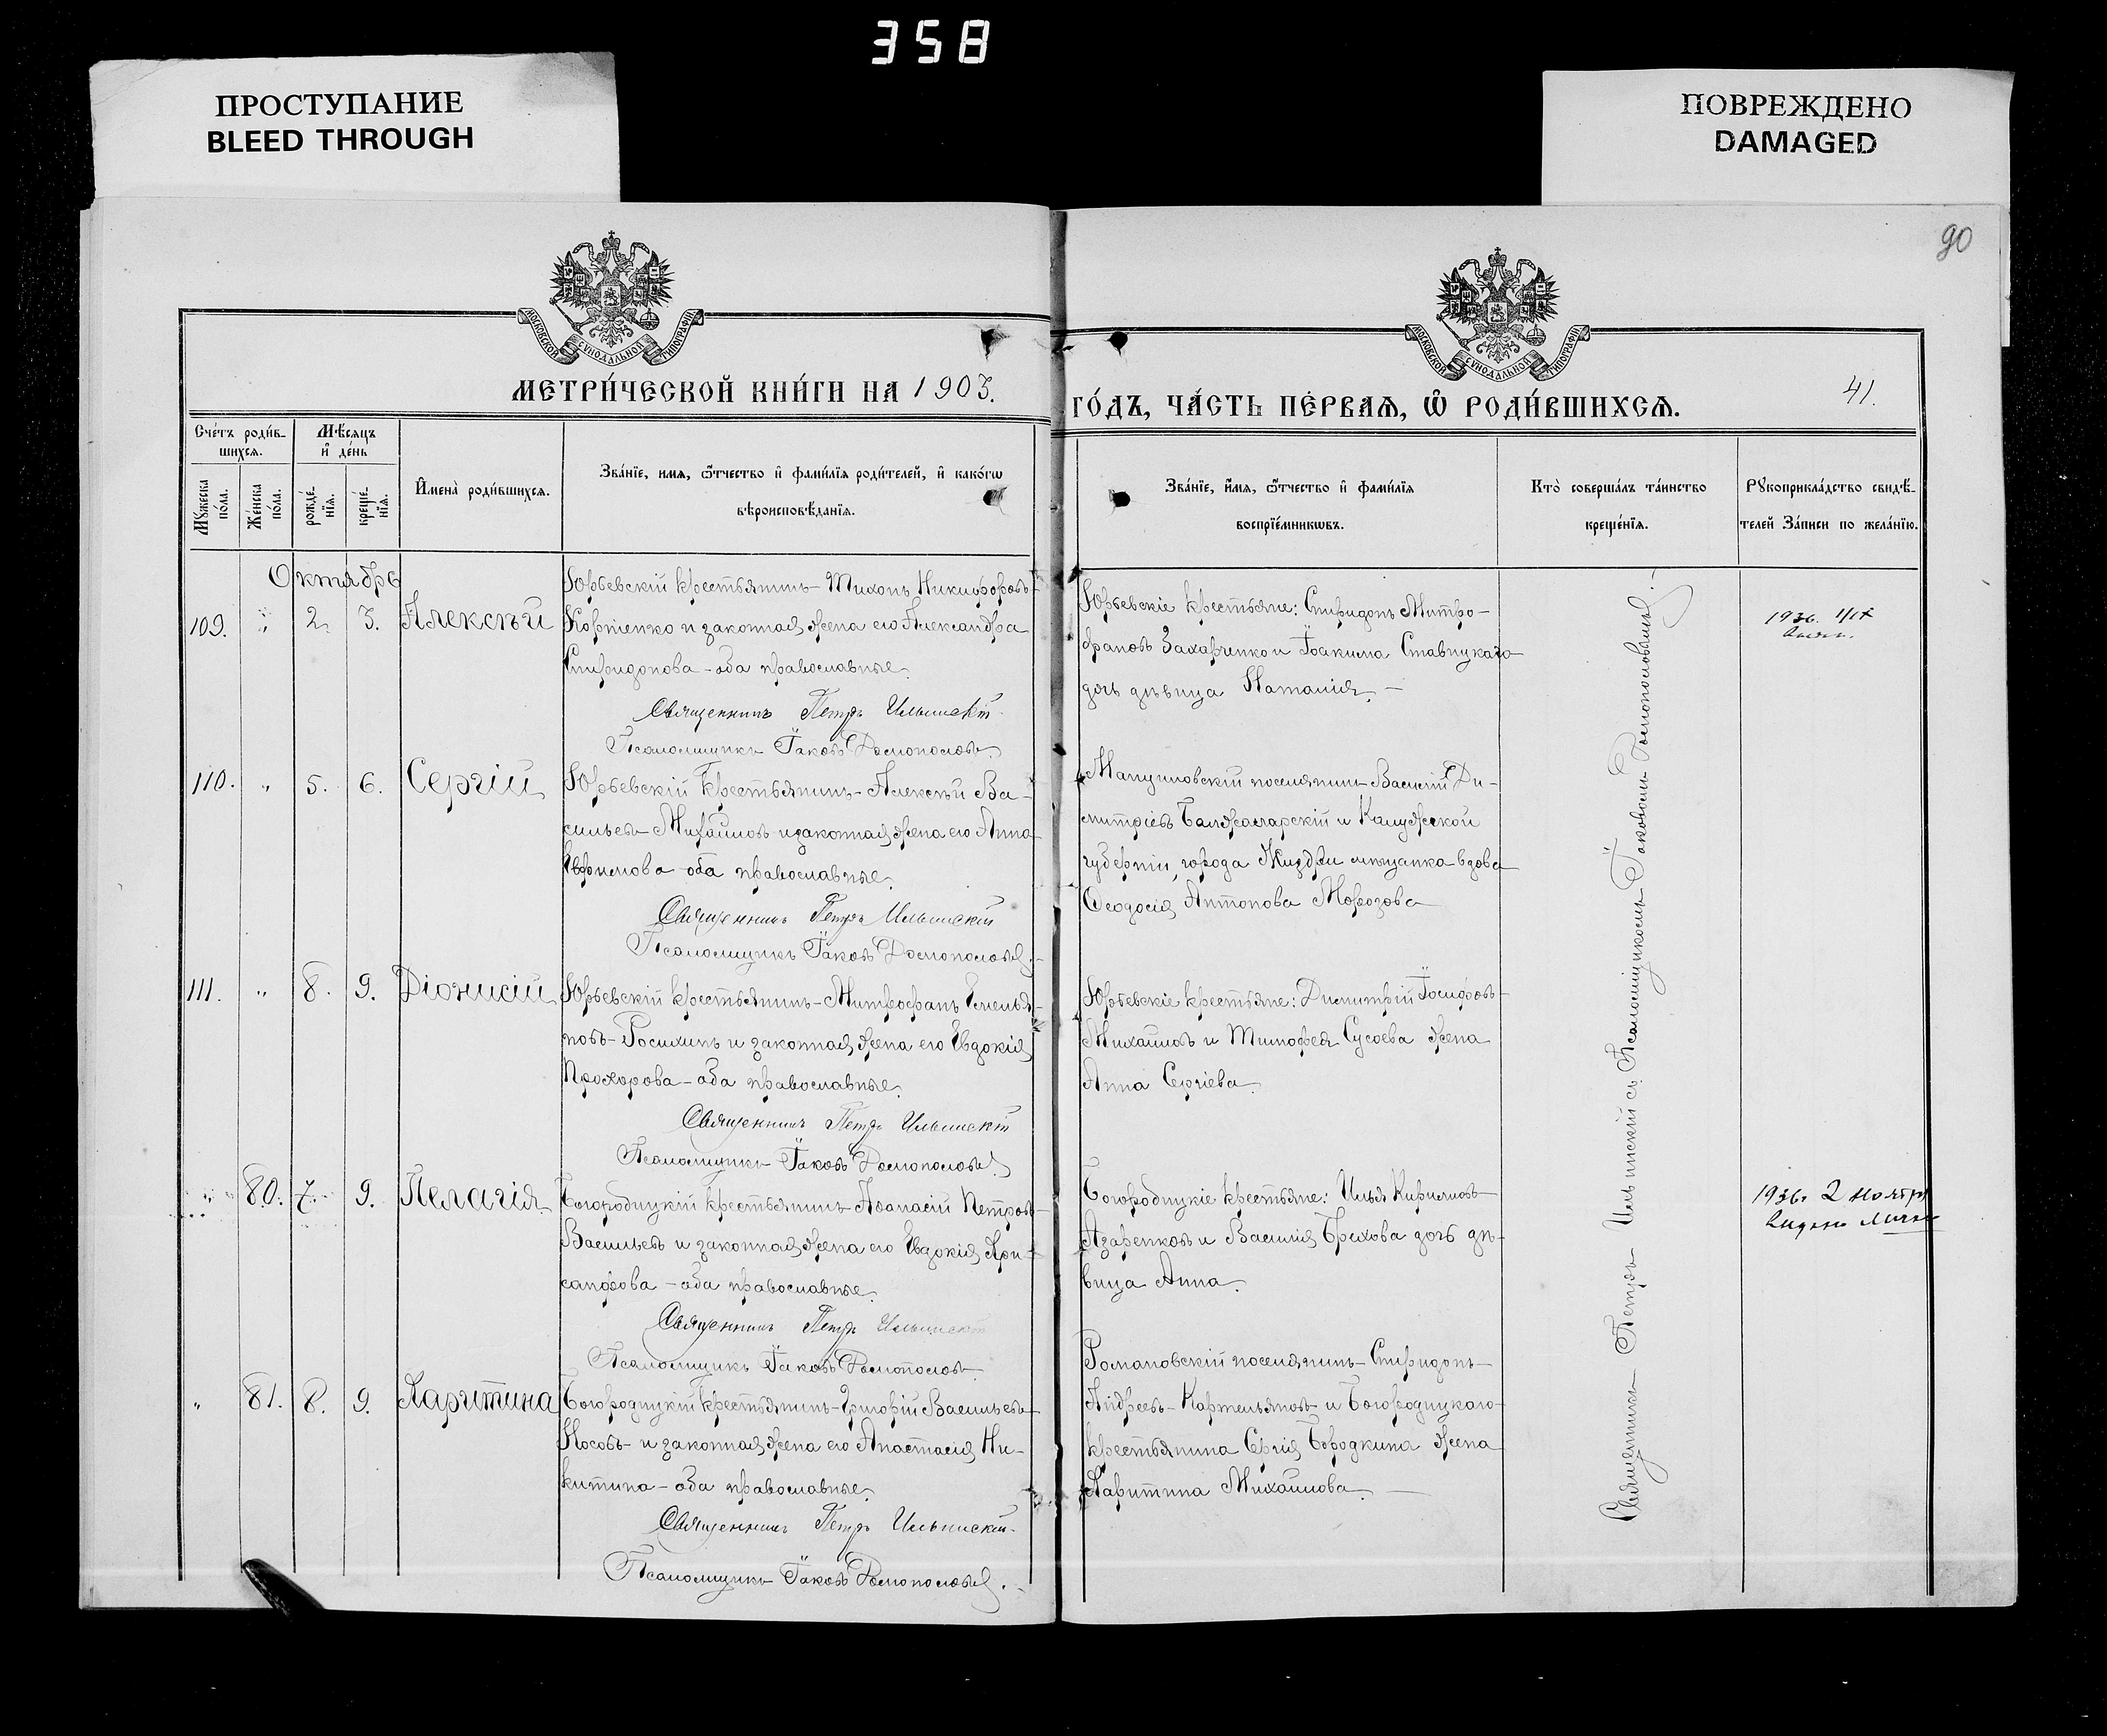 358
ПРОСТУПАНИЕ
BLEED THROUGH
ПОВРЕЖДЕНО
DAMAGED
90
МОСКОВСКОЙ СѴНОДАЛЬНОЙ ТИПОГРАФІИ
МОСКОВСКОЙ СѴНОДАЛЬНОЙ ТИПОГРАФІИ
МЕТРИ́ЧЕСКОЙ КНИ́ГИ НА 1903.
ГО́ДЪ, ЧА́СТЬ ПЕ́РВАѦ, Ѽ РОДИ́ВШИХСѦ.
41.
Сче́тъ роди́в-
шихсѧ.
Мѣ́сѧцъ
и҆ де́нь
Мꙋ́жеска
по́ла.
Же́нска
по́ла.
рожде́-
нїѧ.
креще́-
нїѧ.
И҆мена̀ роди́вшихсѧ.
Зва́нїе, имѧ, ѻ҆́тчество и҆ фами́лїѧ роди́телей, и҆ како́гѡ
вѣроисповѣ́данїѧ.
Зва́нїе, и҆́мѧ, ѻ҆́тчество и҆ фами́лїѧ
воспрїе́мникѡвъ.
Кто̀ соверша́лъ та́инство
креще́нїѧ.
Рꙋкоприкла́дство свидѣ́-
телей За́писи по жела́нїю.
Октябрь
109. " 2. 3. Алексѣй
Юрьевскій крестьянинъ Тихонъ Никифоровъ
Корниенко и законная жена его Александра
Спиридонова – оба православные.
Священникъ Петръ Ильинскій
Псаломщикъ Іаковъ
Юрьевскіе крестьяне: Спиридонъ Митро-
фановъ Захарченко и Іоакима Ставицкаго
дочь дѣвица Наталія. –
1936.
110. " 5. 6. Сергій
Юрьевскій крестьянинъ Алексѣй Ва-
сильевъ Михайловъ и законная жена его Анна
Ефимова – оба православные.
Священникъ Петръ Ильинскій
Псаломщикъ Іаковъ
поселянинъ Василій Ди-
митріевъ и Калужской
губерніи, города Жиздры мѣщанка вдова
Ѳеодосія Антонова Морозова
111. " 8. 9. Діонисій
Юрьевскій крестьянинъ Митрофанъ Емелья-
новъ Росихинъ и законная жена его Евдокія
Прохорова – оба православные.
Священникъ Петръ Ильинскій
Псаломщикъ Іаковъ
Юрьевскіе крестьяне: Димитрій Іосифовъ
Михайловъ и Тимофея Сусоева жена
Анна Сергіева.
" 80. 7. 9. Пелагія
Богородицкій крестьянинъ Аѳанасій Петровъ
Васильевъ и законная жена его Евдокія Хри-
санфова – оба православные.
Священникъ Петръ Ильинскій
Псаломщикъ Іаковъ
Богородицкіе крестьяне: Илья Кириловъ
Азаренковъ и Василія Брехова дочь дѣ-
вица Анна.
1936. 2 ноября
" 81. 8. 9. Харитина
Богородицкій крестьянинъ Григорій Васильевъ
Носовъ и законная жена его Анастасія Ни-
китина – оба православные.
Священникъ Петръ Ильинскій
Псаломщикъ Іаковъ
Романовскій поселянинъ Спиридонъ
Андреевъ Картельяновъ и Богородицкаго
крестьянина Сергія Бородкина жена
Харитина Михайлова. –
Священникъ Петръ Ильинскій съ Псаломщикомъ Іаковомъ